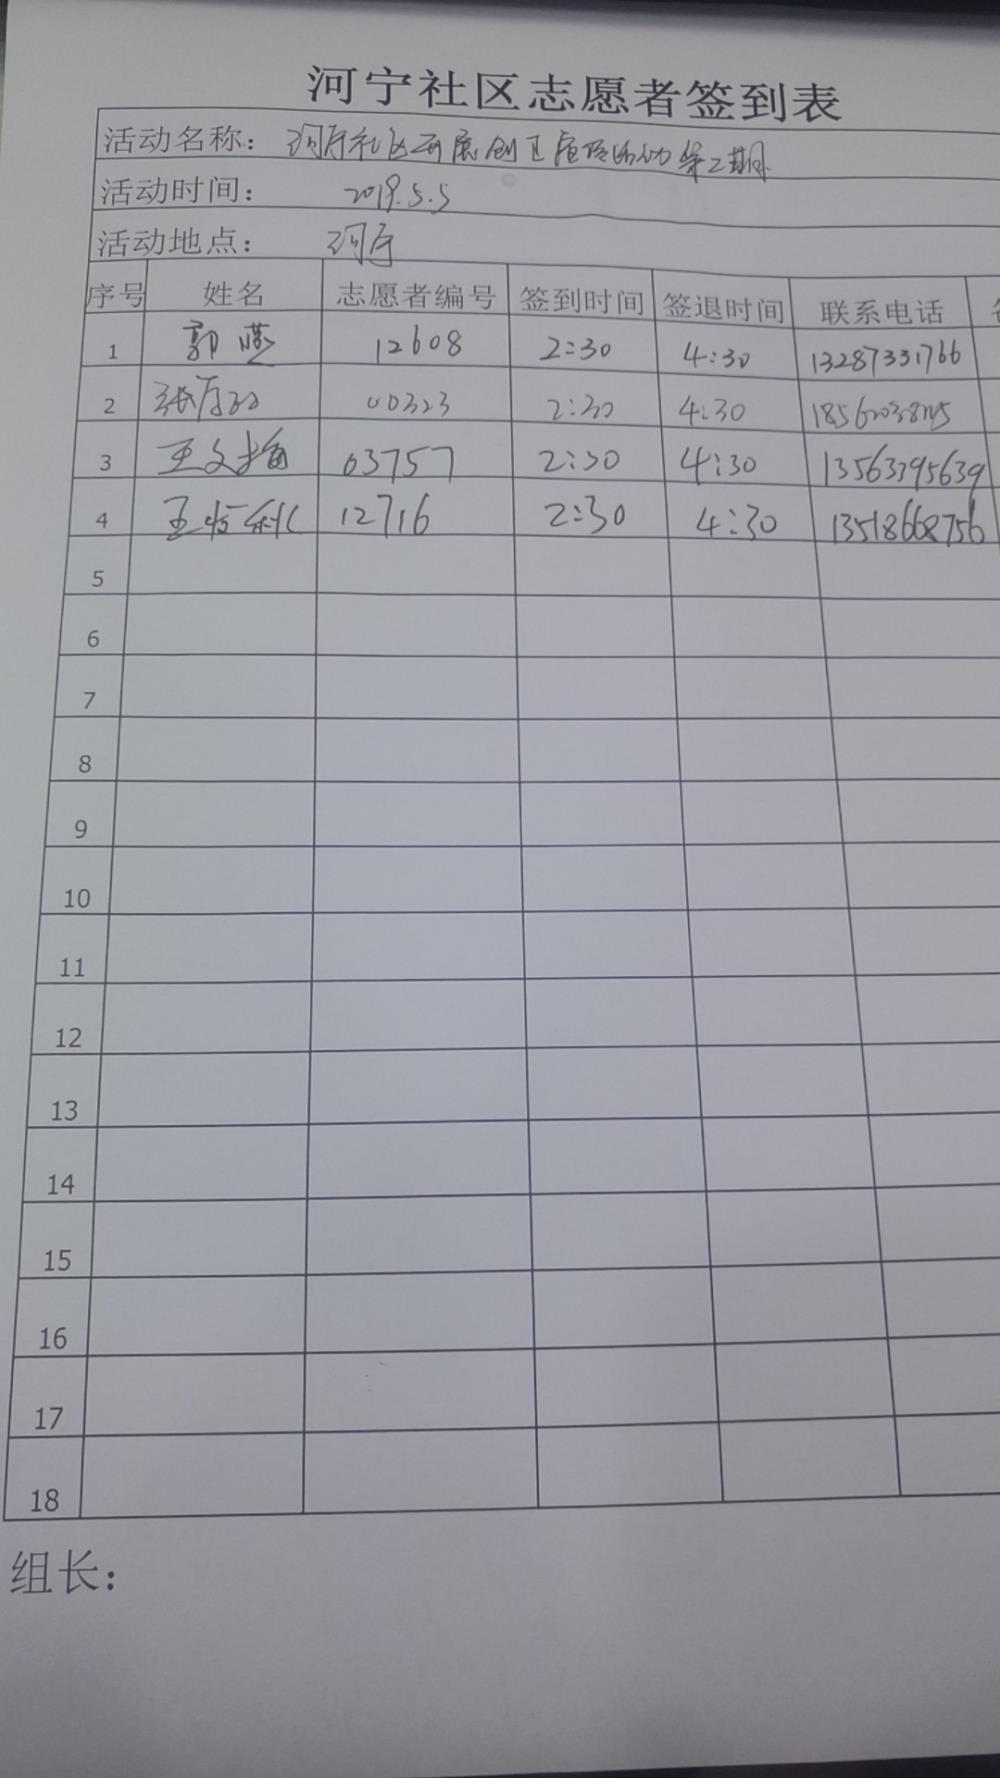 河宁社区志愿者签到表
活动名称: 河宁社区开展创卫 活动第二期
活动时间: 2019.5.5
活动地点: 河宁
序号 姓名 志愿者编号 签到时间 签退时间 联系电话
1 郭燕 12608 2:30 4:30 13287331766
2 张 00323 2:30 4:30
3 王文梅 03757 2:30 4:30 13563395639
4 王 12716 2:30 4:30 13518668756
5
6
7
8
9
10
11
12
13
14
15
16
17
18
组长: